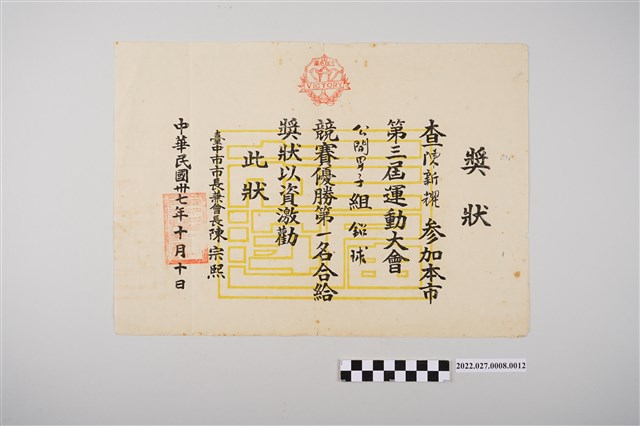 VICTORY
獎狀
查陳新擢參加本市
第三屆運動大會
公開男子組鉛球
競賽優勝第一名合給
獎狀以資激勸
此狀
臺中市市長兼會長陳宗熙
中華民國卅七年十月十日
2022.027.0008.0012